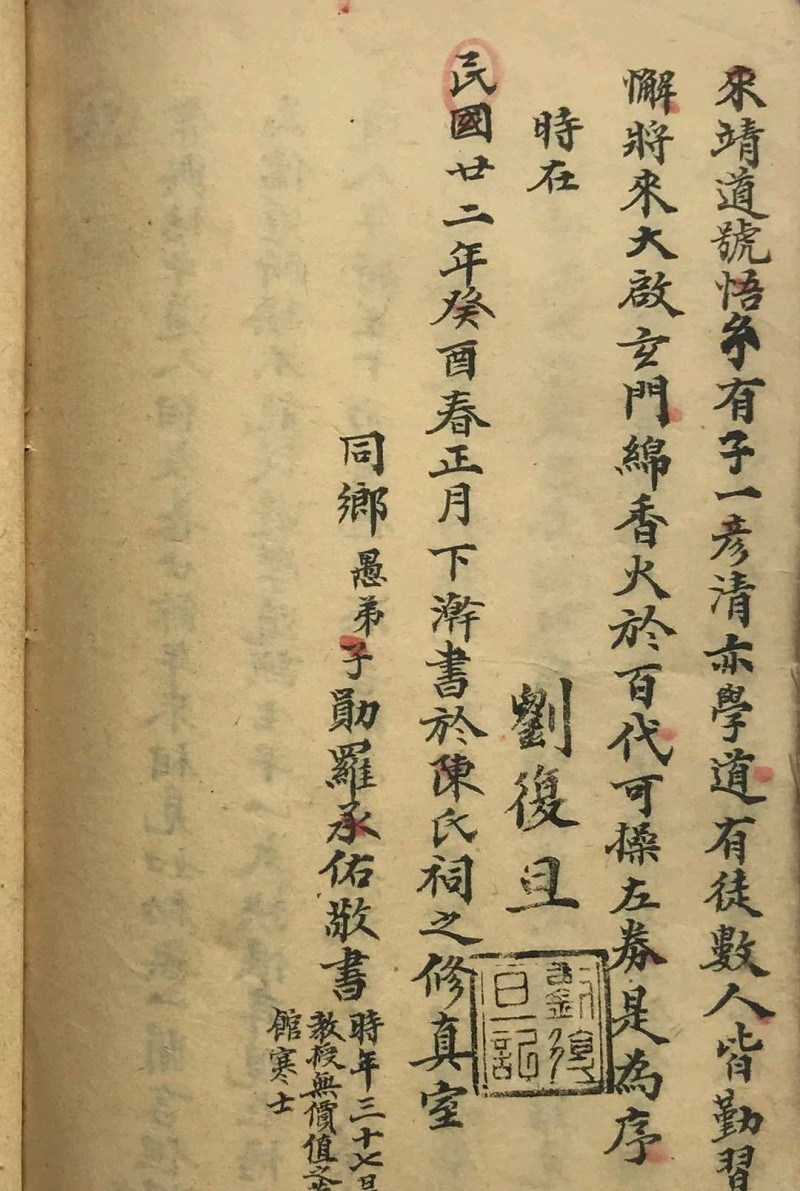 來靖道號悟糸有子一彥清亦學道有徒數人皆勤習
懈將來大啟玄門綿香火於百代可操左券是為序
時在
劉復旦
劉復旦記
民國廿二年癸酉春正月下澣書於陳氏祠之修真室
同鄉愚弟子勛羅承佑敬書
時年三十七
教授無價值之
館寒士